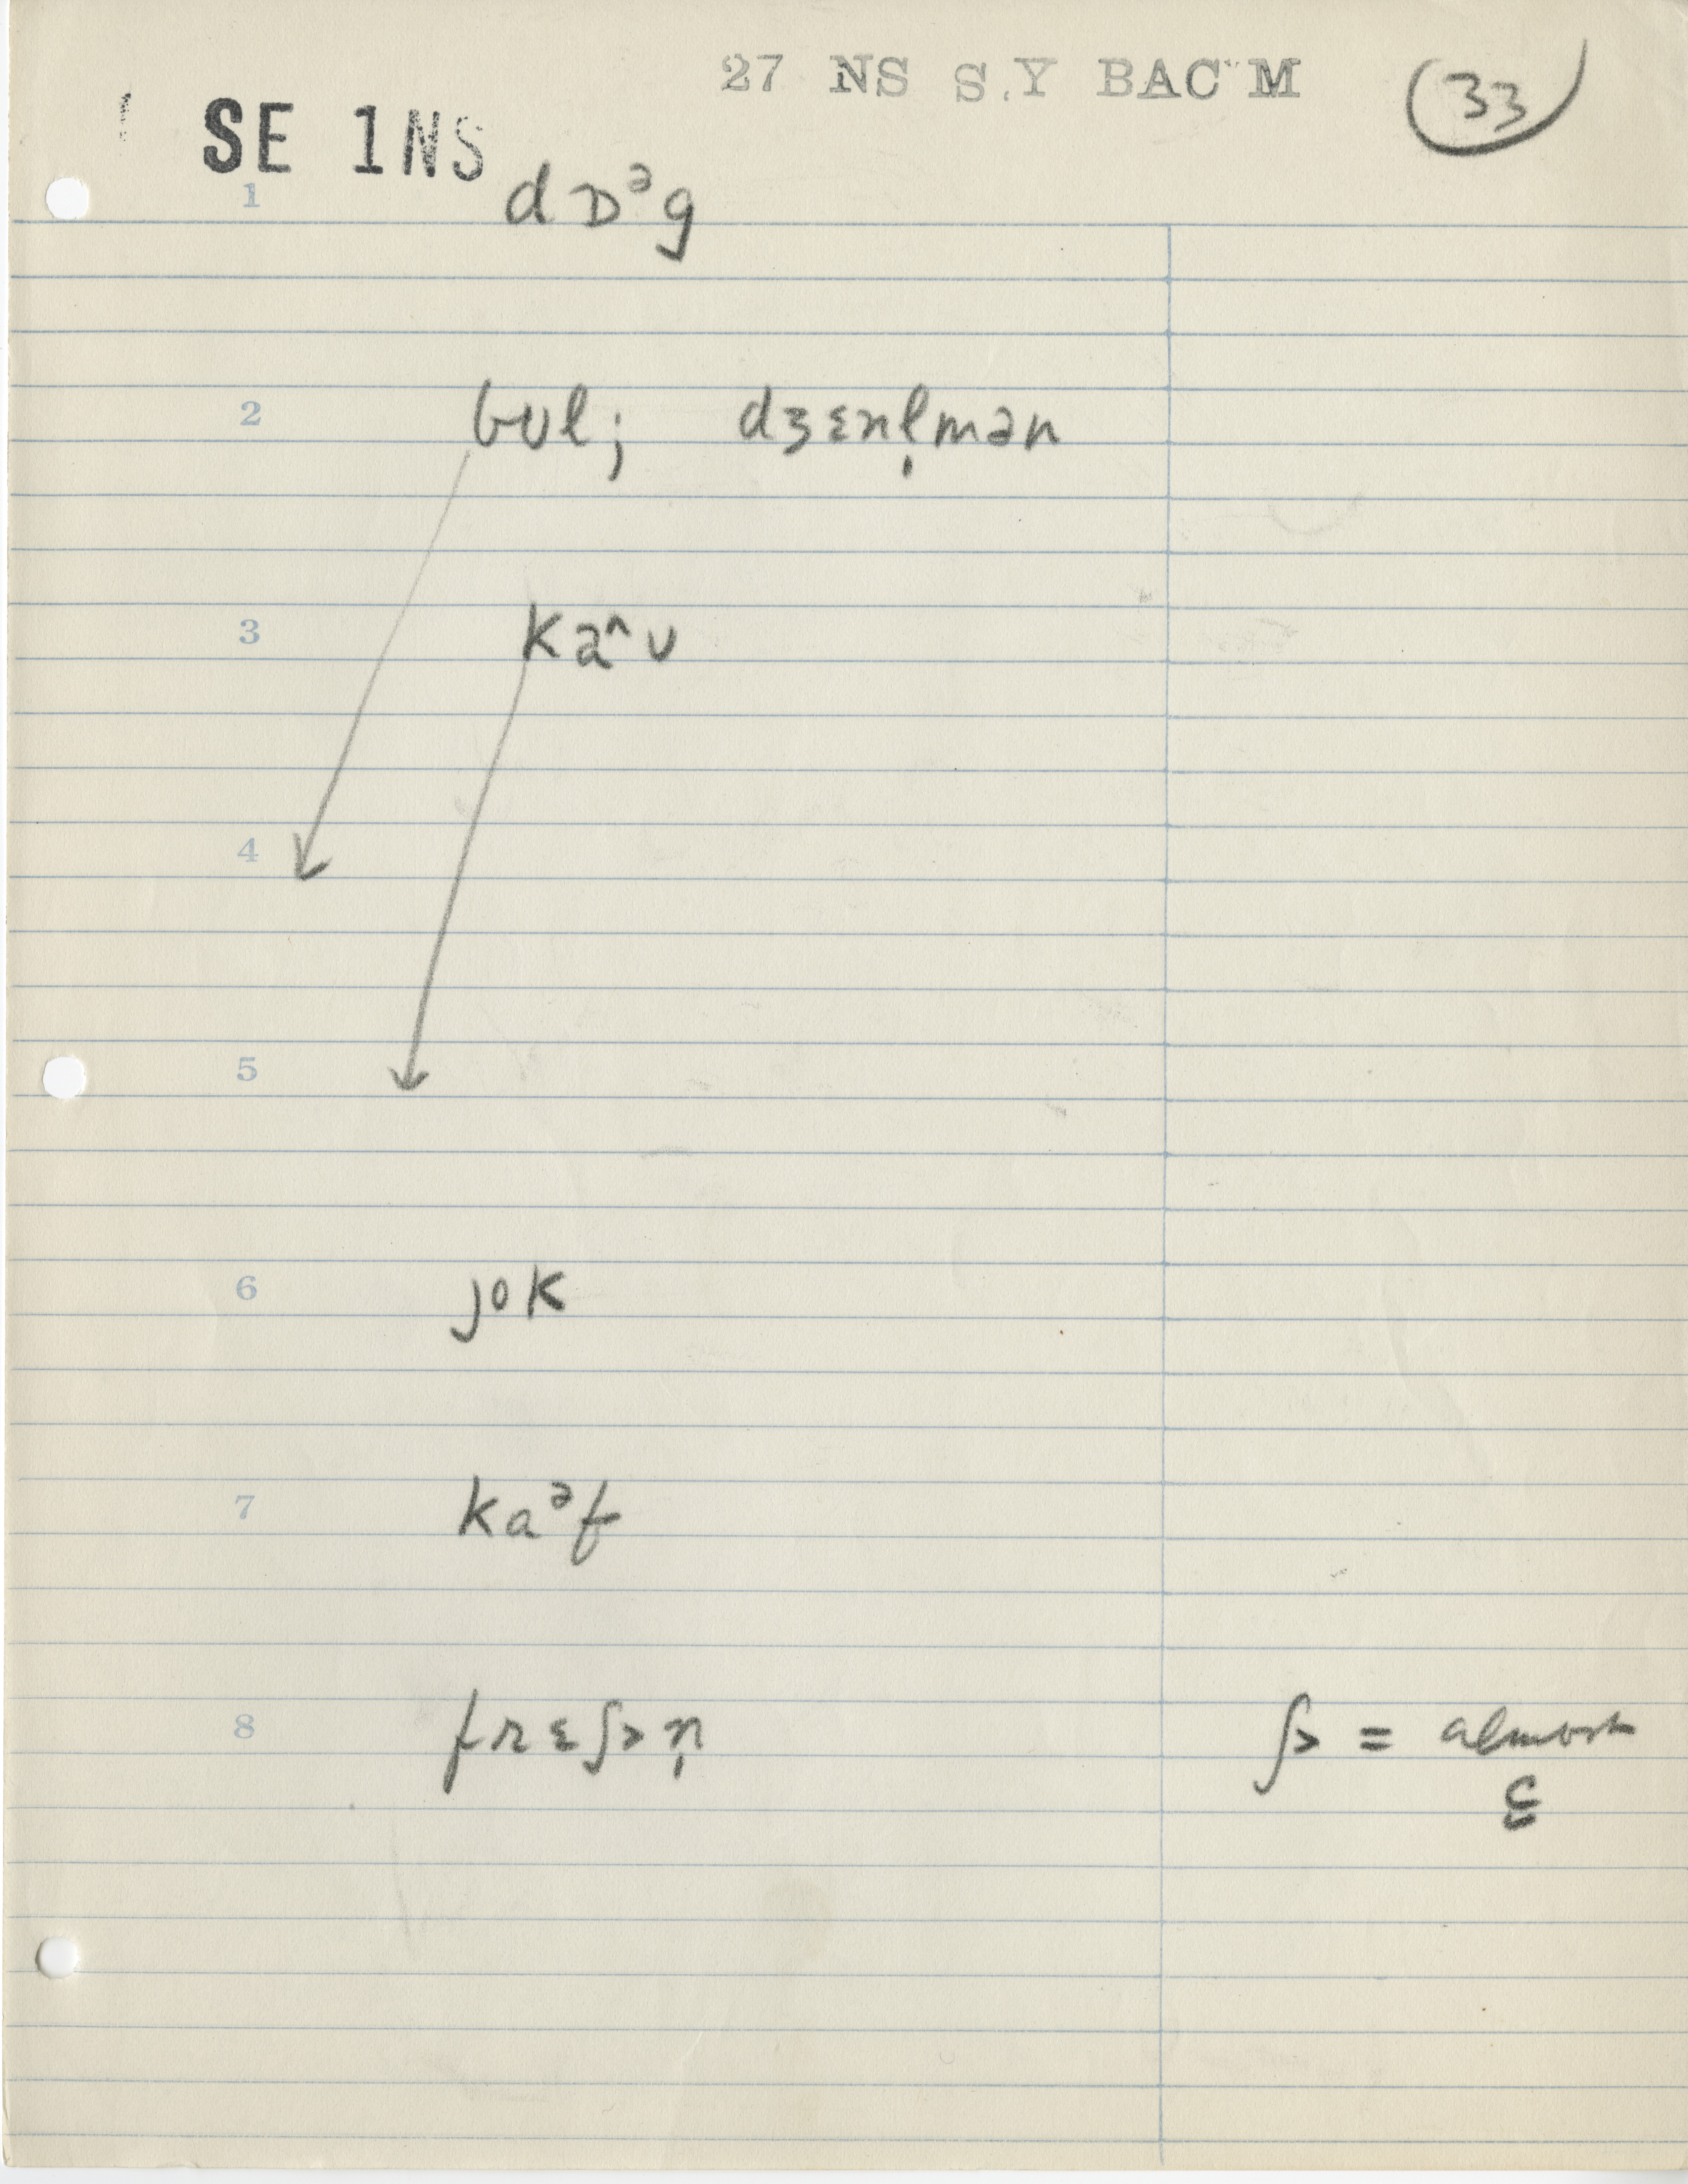 27 NS S.Y BAC M
33
SE 1NS
1 dɒᵊg
2 bʊl; dʒɛnl̩mən
3 kaˆʊ
4
5
6 jok
7 kaᵊf
8 frɛʃ˃n̩ ʃ˃ = almost
ç